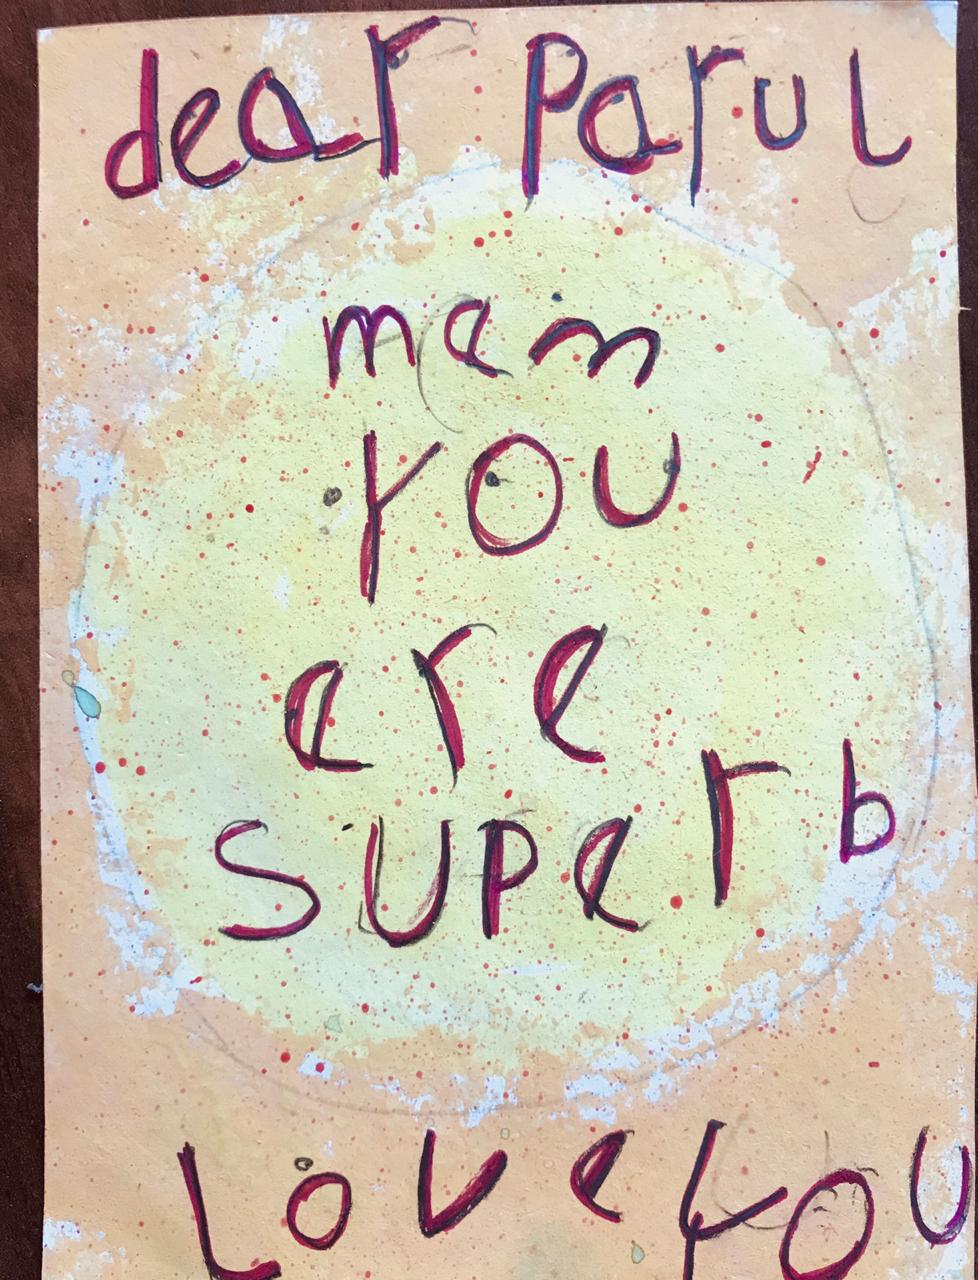 dear Parul
mam
YOU
are
SUPerb
Love YOU